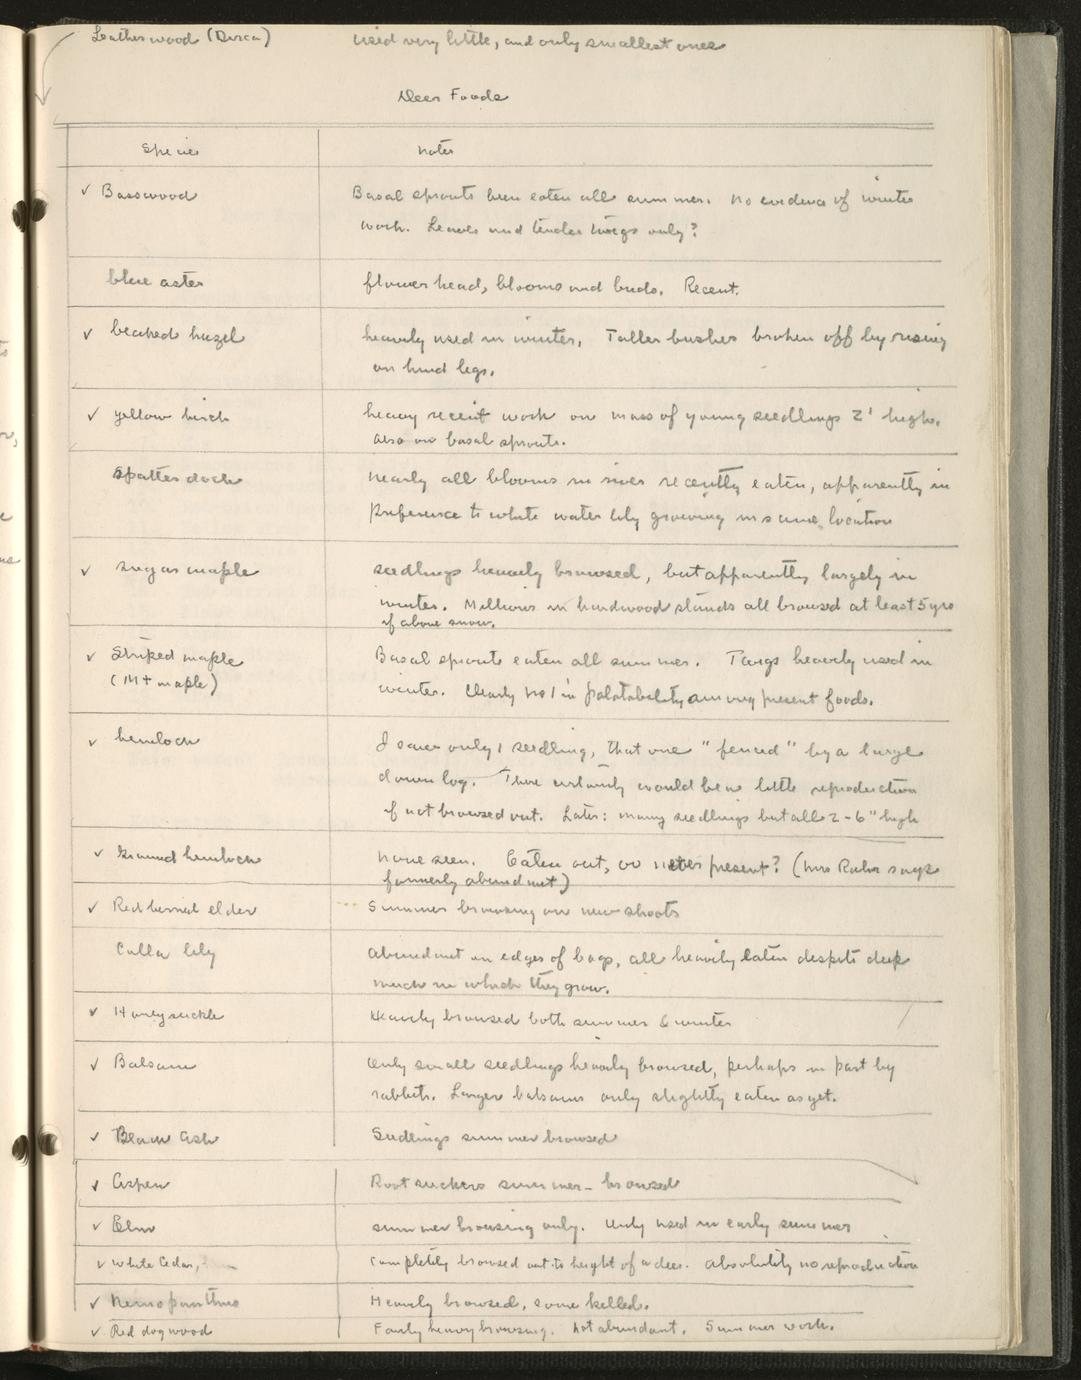 Leatherwood (Dirca) used very little, and only smallest ones
Deer Foods
Species notes
✓ Basswood Basal sprouts been eaten all summer. No evidence of winter
work. Leaves and tender twigs only?
blue aster flower head, blooms and buds. Recent.
✓ beaked hazel heavily used in winter. Taller bushes broken off by rising
on hind legs.
✓ yellow birch heavy recent work on mass of young seedlings 2' high.
also on basal sprouts.
Spatterdock nearly all blooms in river recently eaten, apparently in
preference to white water lily growing in same location
✓ sugar maple seedlings heavily browsed, but apparently largely in
winter. Millions in hardwood stands all browsed at least 5 yrs
if above snow.
✓ Striped maple Basal sprouts eaten all summer. Twigs heavily used in
(Mt maple) winter. Clearly no 1 in palatability among present foods.
✓ hemlock I saw only 1 seedling, that one "fenced" by a large
down log. There certainly would be a little reproduction
if not browsed out. Later: many seedlings but all 2-6" high
✓ Ground hemlock none seen. Eaten out, or never present? (Mrs says
formerly abundant)
✓ Red berried elder Summer browsing on new shoots
Calla lily abundant on edges of bogs, all heavily eaten despite deep
muck in which they grow.
✓ Honeysuckle Heavily browsed both summer & winter
✓ Balsam Only small seedlings heavily browsed, perhaps in part by
rabbits. Larger balsams only slightly eaten as yet.
✓ Black Ash Seedlings summer browsed
✓ Aspen Root suckers summer-browsed
✓ Elm summer browsing only. Only used in early summer
✓ White Cedar, completely browsed out to height of a deer. Absolutely no reproduction
✓ Nemopanthus Heavily browsed, some killed.
✓ Red dogwood Fairly heavy browsing. Not abundant. Summer work.